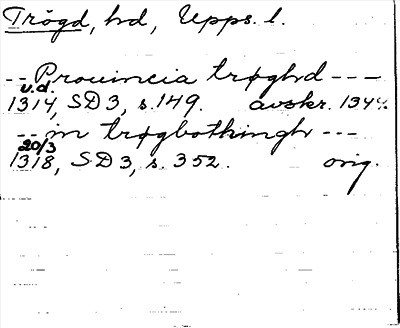 Trögd, hd, Upps. l.
-- Prouincia trøghd ---
u.d.
1314, SD 3, s. 149. avskr. 1344
-- in trøgbothingh ---
20/3
1318, SD 3, s. 352. orig.